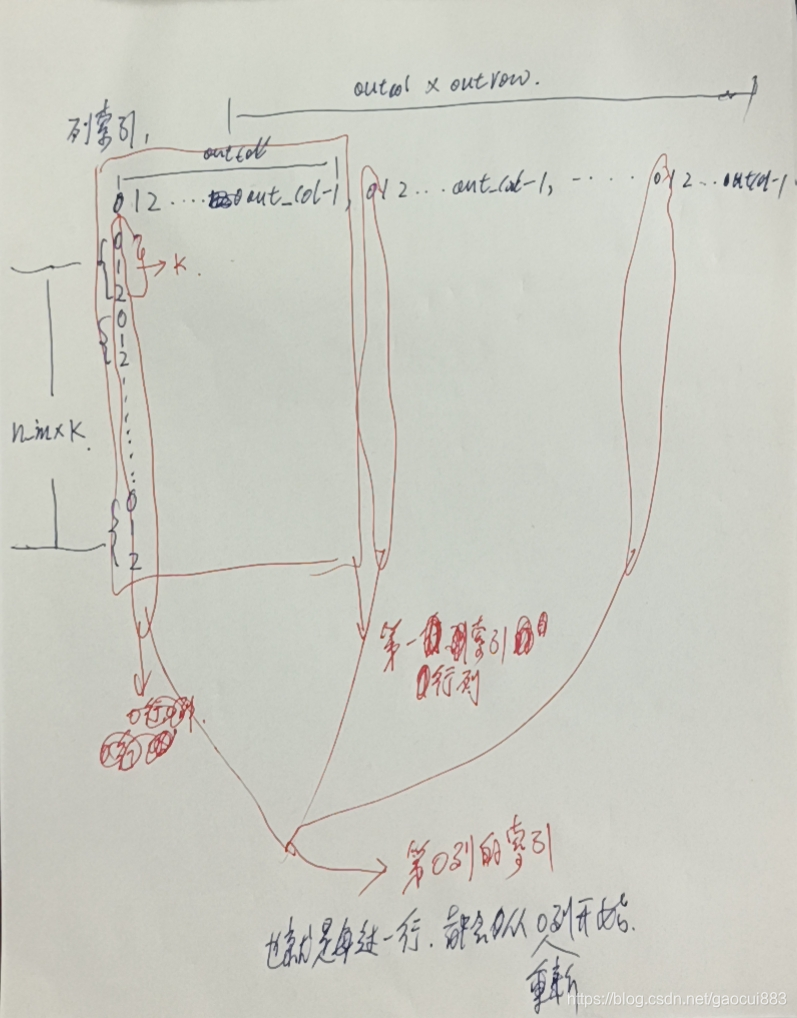 outcol × outrow.
列索引,
outcol
0 1 2 .... out_col-1, 0 1 2 ... out_col-1, - .... 0 1 2 ... outcol-1.
0
1
2
→ K.
0
1
2
n_in×K.
0
1
2
第一 索引
行列
0行
第0列的索引
也就是每过一行,都会从0列开始.
重新
https://blog.csdn.net/gaocui883